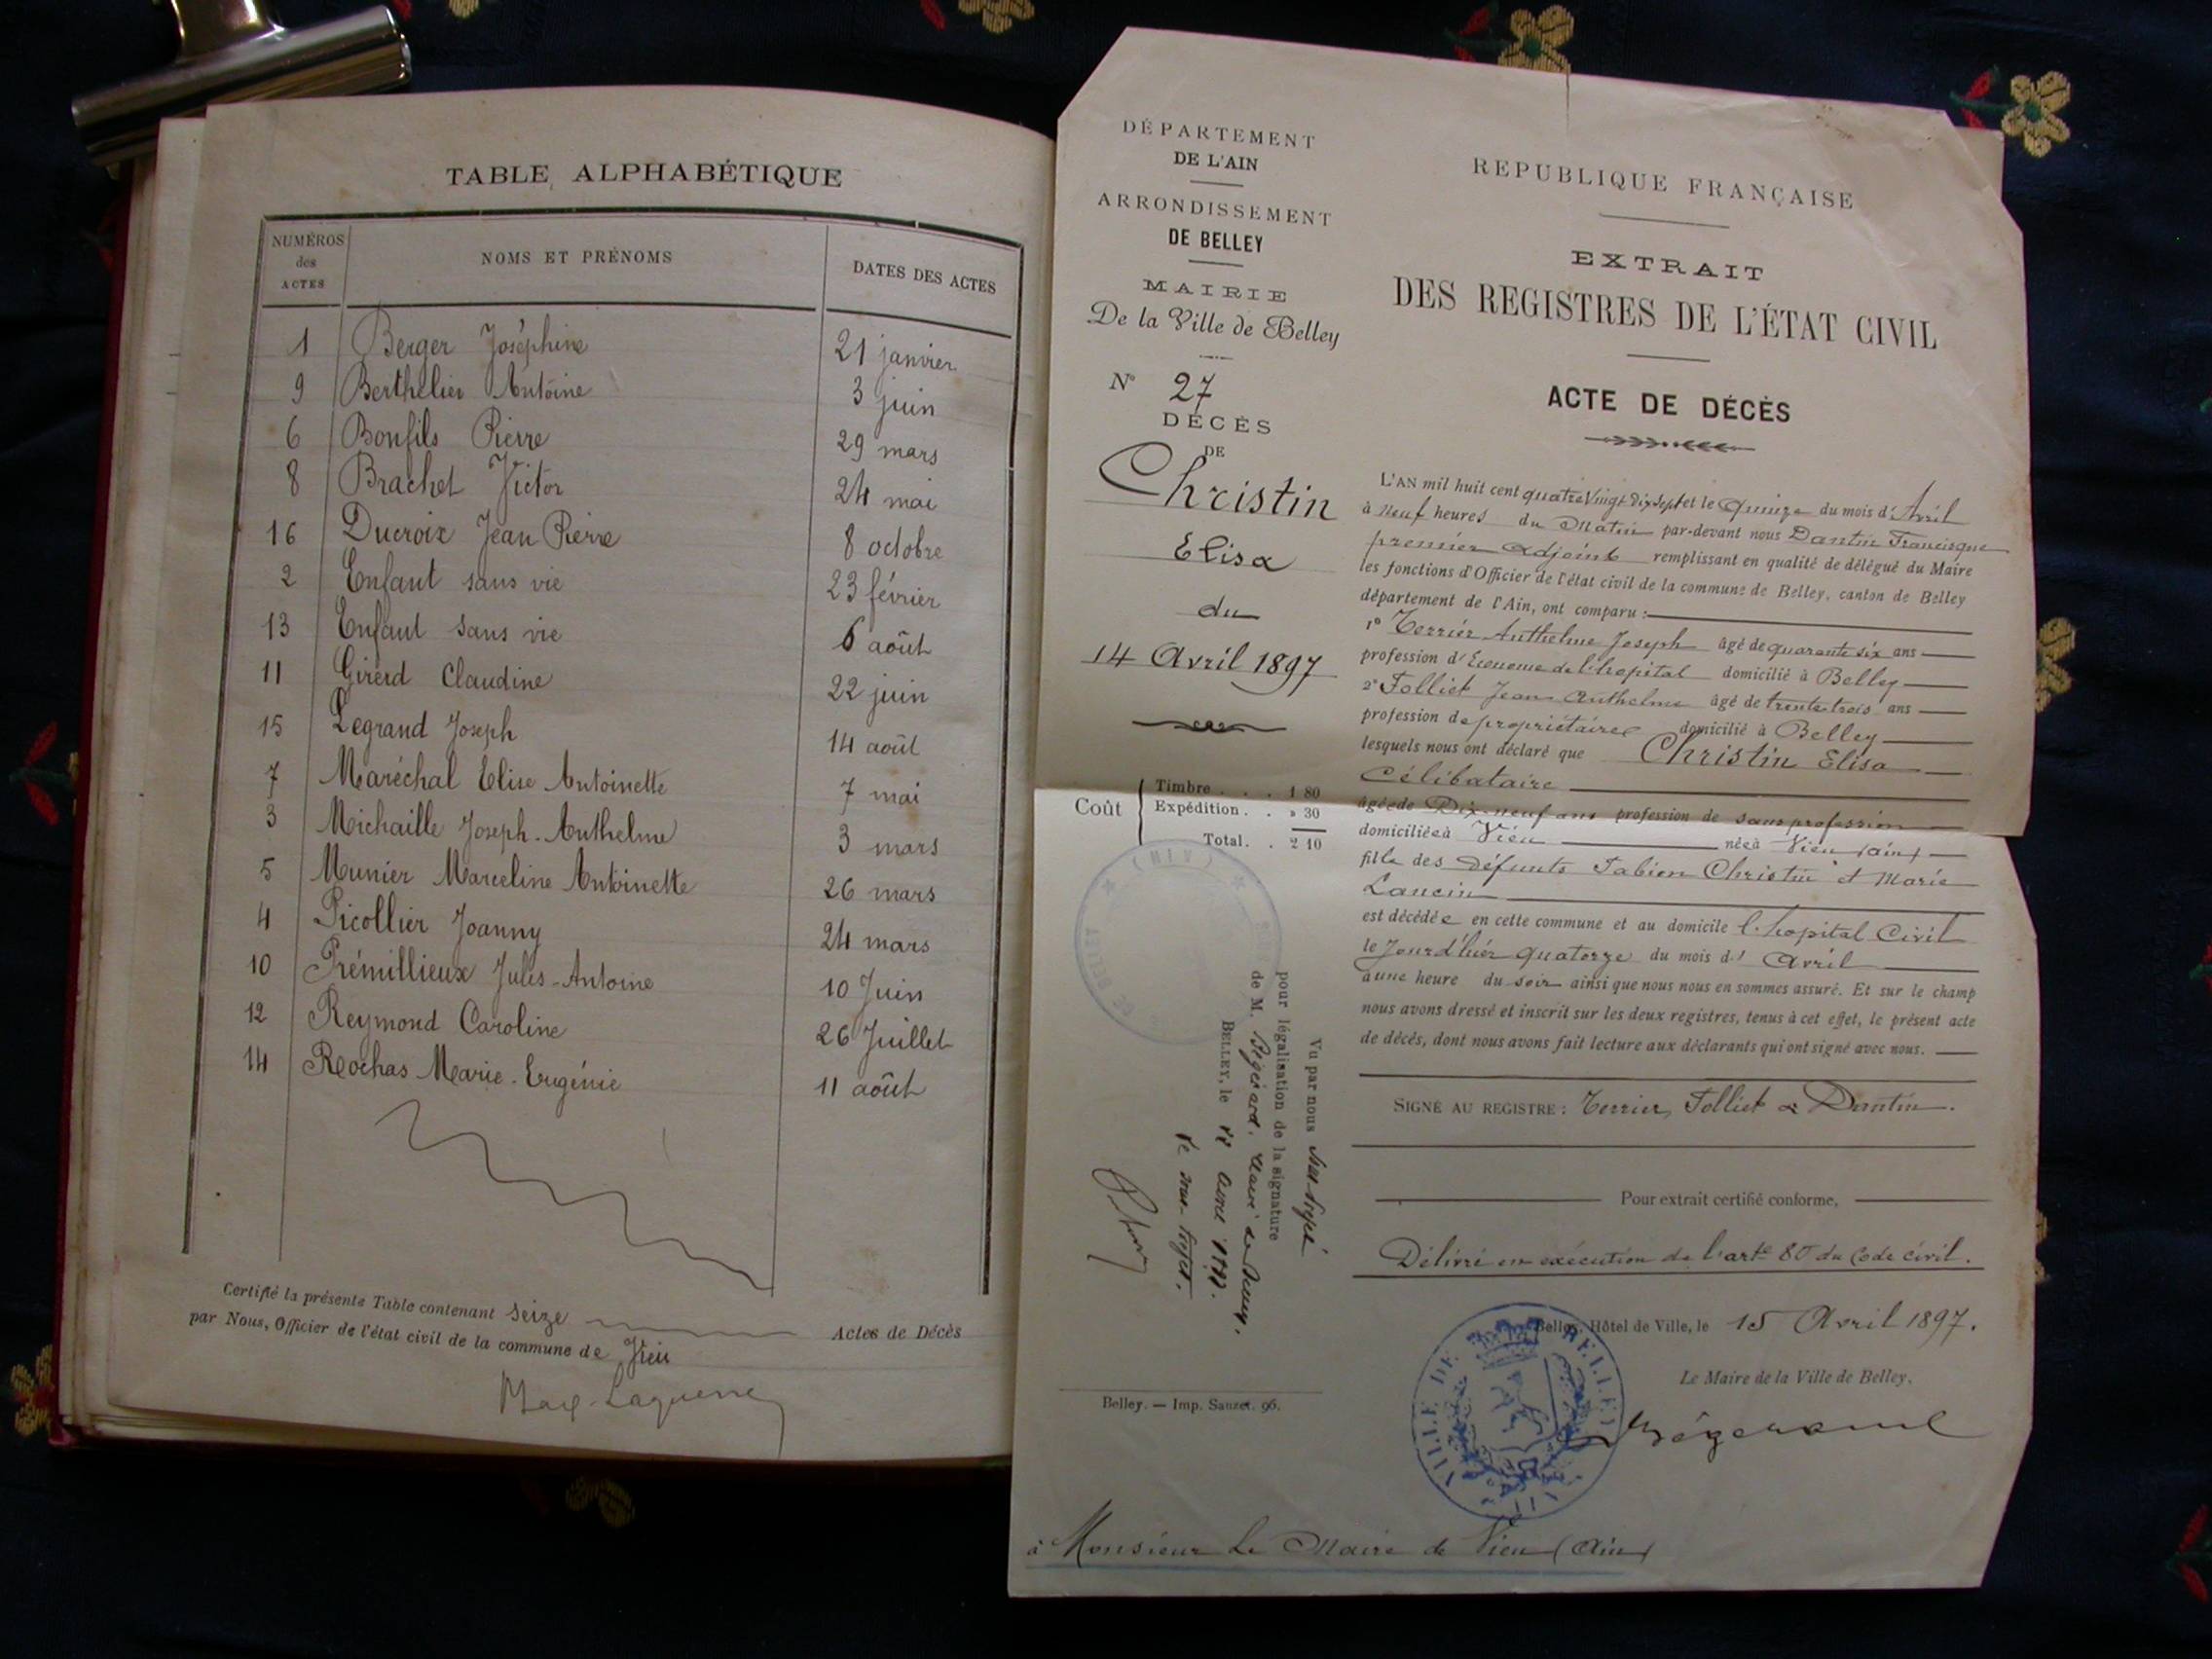 TABLE ALPHABÉTIQUE
NUMÉROS des ACTES
NOMS ET PRÉNOMS
DATES DES ACTES
1 Berger Joséphine 21 janvier
9 Berthelier Antoine 3 juin
6 Bonfils Pierre 29 mars
8 Brachet Victor 24 mai
16 Ducroix Jean Pierre 8 octobre
2 Enfant sans vie 23 février
13 Enfant sans vie 6 août
11 Girerd Claudine 22 juin
15 Legrand Joseph 14 août
7 Maréchal Elise Antoinette 7 mai
3 Michaille Joseph-Anthelme 3 mars
5 Munier Marceline Antoinette 26 mars
4 Picollier Joanny 24 mars
10 Prémillieux Jules-Antoine 10 Juin
12 Reymond Caroline 26 Juillet
14 Rochas Marie-Eugénie 11 août
Certifié la présente Table contenant seize Actes de Décès
par Nous, Officier de l'état civil de la commune de Vieu
DÉPARTEMENT
DE L'AIN
ARRONDISSEMENT
DE BELLEY
MAIRIE
De la Ville de Belley
N° 27
DÉCÈS
DE
Christin
Elisa
du
14 Avril 1897
Coût
Timbre . . . 1 80
Expédition . . » 30
Total. . 2 10
Vu par nous
pour légalisation de la signature
de M. Bégerard, Maire de Belley,
BELLEY, le avril
Le sous-Préfet,
Belley. — Imp. Sauzet. 96.
REPUBLIQUE FRANÇAISE
EXTRAIT
DES REGISTRES DE L'ÉTAT CIVIL
ACTE DE DÉCÈS
L'AN mil huit cent quatre Vingt Dix Sept et le Quinze du mois d'Avril
à Neuf heures du Matin par-devant nous Dantin Francisque
premier adjoint remplissant en qualité de délégué du Maire
les fonctions d'Officier de l'état civil de la commune de Belley, canton de Belley
département de l'Ain, ont comparu :
1° Terrier Anthelme Joseph âgé de quarante six ans
profession d'Econome de l'hopital domicilié à Belley
2° Folliet Jean Anthelme âgé de trente trois ans
profession de propriétaire domicilié à Belley
lesquels nous ont déclaré que Christin Elisa
Célibataire
âgée de Dix-neuf ans profession de sans profession
domiciliée à Vieu née à Vieu (ain)
fille des défunts Fabien Christin et Marie
Lancin
est décédée en cette commune et au domicile l'hopital Civil
le Jour d'hier quatorze du mois d' Avril
à une heure du soir ainsi que nous nous en sommes assuré. Et sur le champ
nous avons dressé et inscrit sur les deux registres, tenus à cet effet, le présent acte
de décès, dont nous avons fait lecture aux déclarants qui ont signé avec nous.
SIGNÉ AU REGISTRE : Terrier, Folliet & Dantin.
Pour extrait certifié conforme,
Délivré en exécution de l'arte 80 du Code civil.
Belley, Hôtel de Ville, le 15 Avril 1897.
Le Maire de la Ville de Belley,
VILLE DE BELLEY
à Monsieur Le Maire de Vieu (Ain)